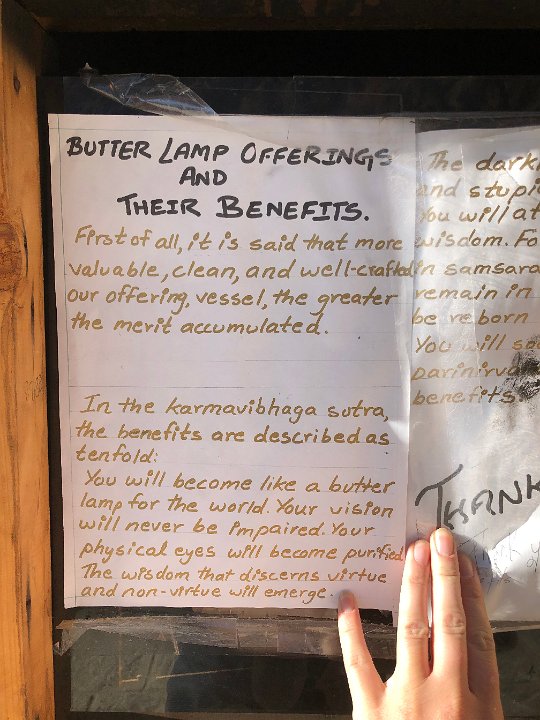 BUTTER LAMP OFFERINGS
AND
THEIR BENEFITS.
First of all, it is said that more
valuable, clean, and well-crafted
our offering, vessel, the greater
the merit accumulated.
In the karmavibhaga sutra,
the benefits are described as
tenfold:
You will become like a butter
lamp for the world. Your vision
will never be impaired. Your
physical eyes will become purified
The wisdom that discerns virtue
and non-virtue will emerge.
The dark
and stupi
You will at
wisdom. Fo
in samsara
remain in
be reborn
You will
parinirva
benefits.
THANK